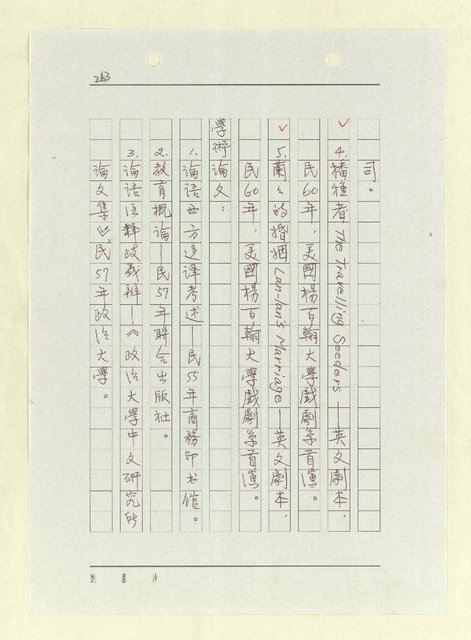 263
司。
4. 播種者 The Travelling Seeders—英文劇本，
民60年，美國楊百翰大學戲劇系首演。
5. 蘭蘭的婚姻 Lan-lan's Marriage—英文劇本，
民60年，美國楊百翰大學戲劇系首演。
學術論文：
1. 論語西方迻譯考述—民55年商務印书館。
2. 教育概論—民57年聯合出版社。
3. 論語注釋歧義辨—《政治大學中文研究所
論文集》，民57年政治大學。